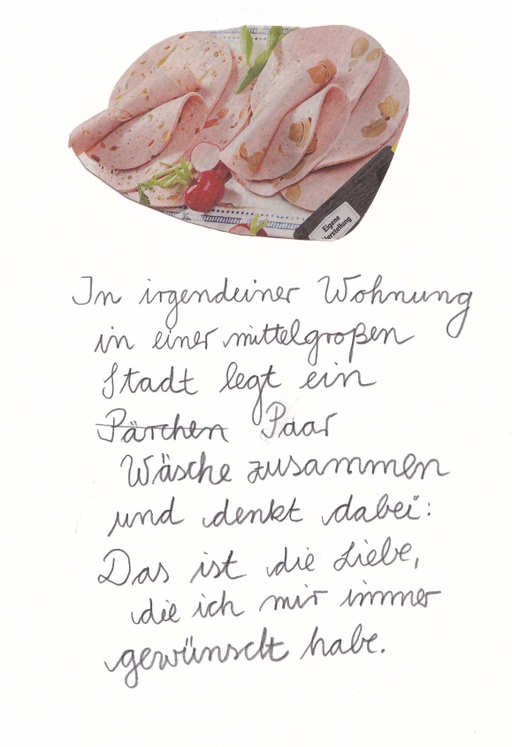 Eigene
In irgendeiner Wohnung
in einer mittelgroßen
Stadt legt ein
Pärchen Paar
Wäsche zusammen
und denkt dabei:
Das ist die Liebe,
die ich mir immer
gewünscht habe.